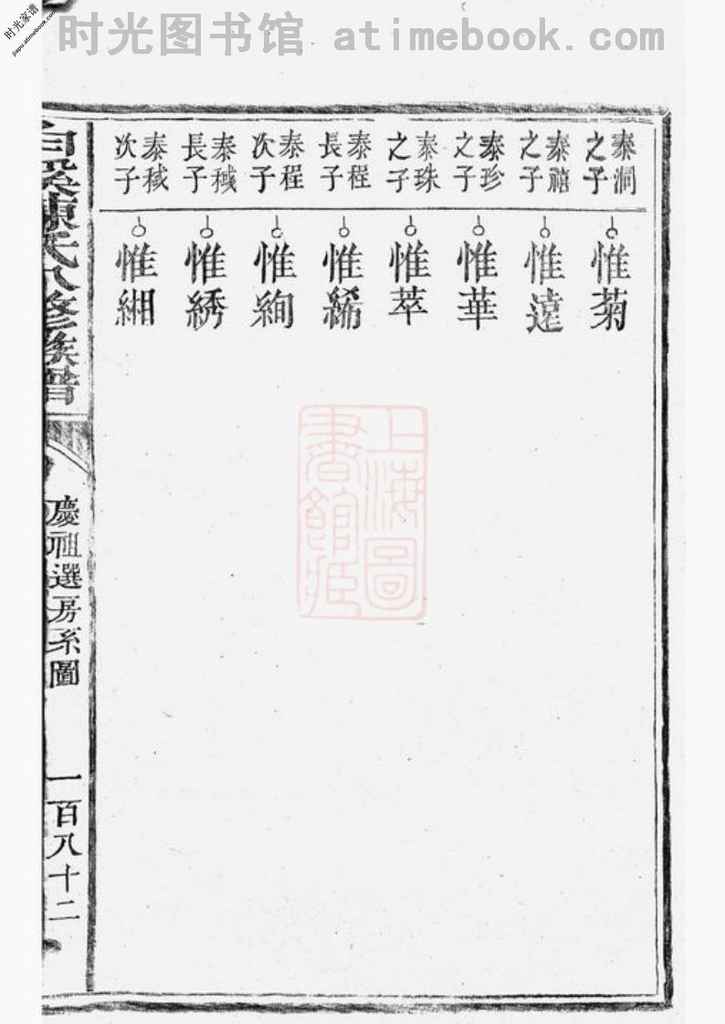 时光图书馆 atimebook.com
时光家谱
jiapu.atimebook.com
泰洞之子
惟菊
泰禧之子
惟遠
泰珍之子
惟華
泰珠之子
惟萃
泰程長子
惟絺
泰程次子
惟絢
泰穊長子
惟綉
泰穊次子
惟緗
上海圖書館藏
陳氏八修族譜
慶祖選房系圖
一百八十二